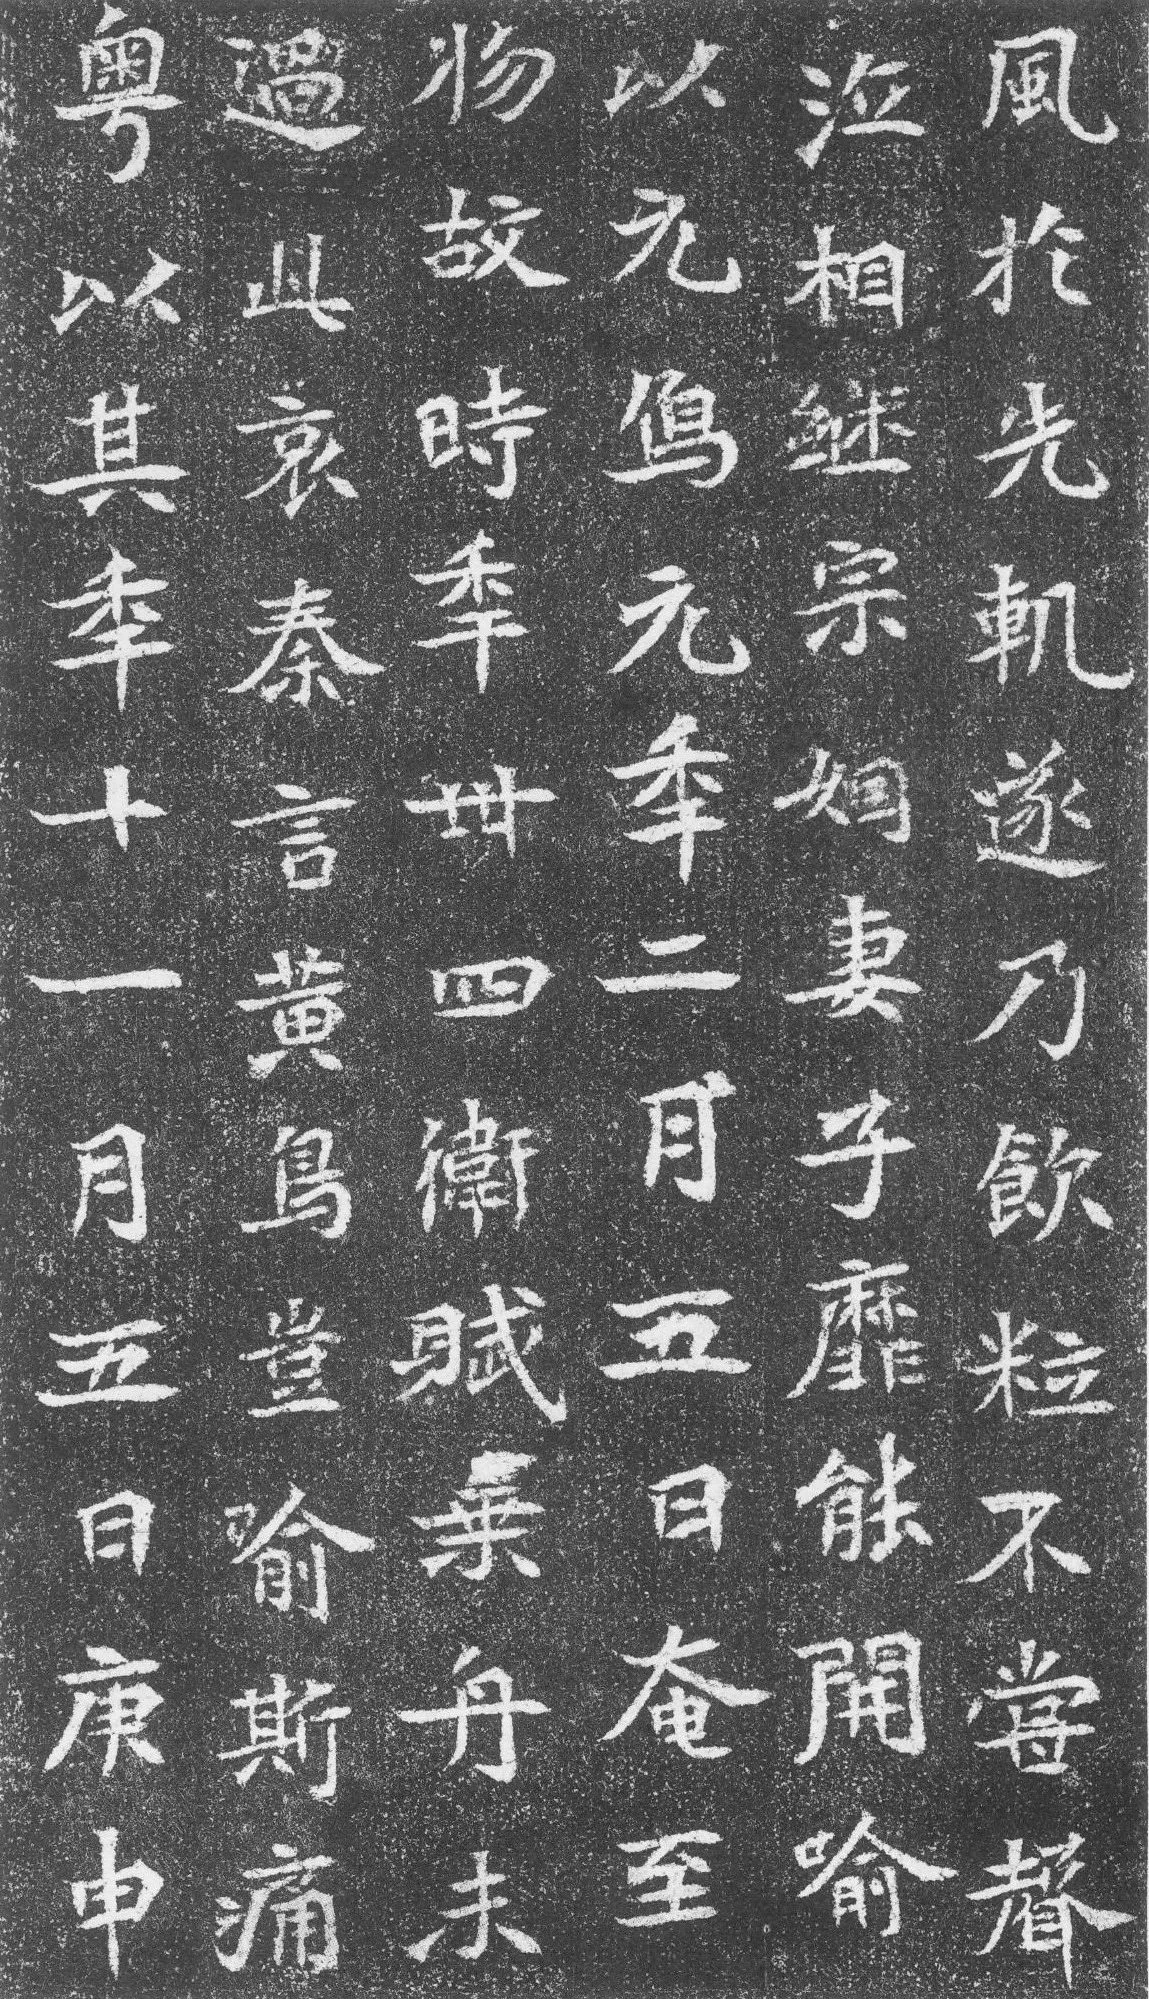 風於先軌遂乃飲粒不嘗聲
泣相繼宗姻妻子靡能開喻
以元鳥元年二月五日奄至
物故時年卌四衛賦乗舟未
過此哀秦言黃鳥豈喻斯痛
粵以其年十一月五日庚申